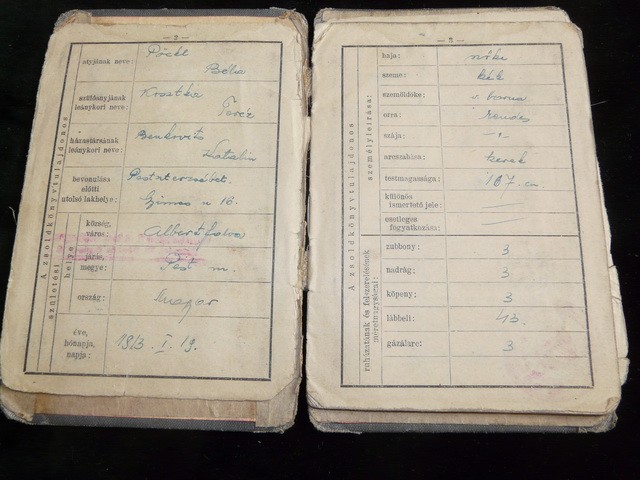 — 2 —
A zsoldkönyvtulajdonos
atyjának neve: Pöckl
Béla
szülőanyjának
leánykori neve: Krosztka
Teréz
házastársának
leánykori neve: Benkovits
Katalin
bevonulása
előtti
utolsó lakhelye: Pestszterzsébet
u 16.
születési
helye
község,
város: Albertfalva
járás,
megye: Pest m.
ország: Magyar
éve,
hónapja,
napja: 1913. I. 19.
— 3 —
A zsoldkönyvtulajdonos
személyleírása:
haja: szőke
szeme: kék
szemöldöke: v. barna
orra: rendes
szája: — " —
arcszabása: kerek
testmagassága: 167 cm
különös
ismertető jele: —
esetleges
fogyatkozása: —
ruházatának és felszerelésének
méretnagyságai:
zubbony: 3
nadrág: 3
köpeny: 3
lábbeli: 43
gázálarc: 3